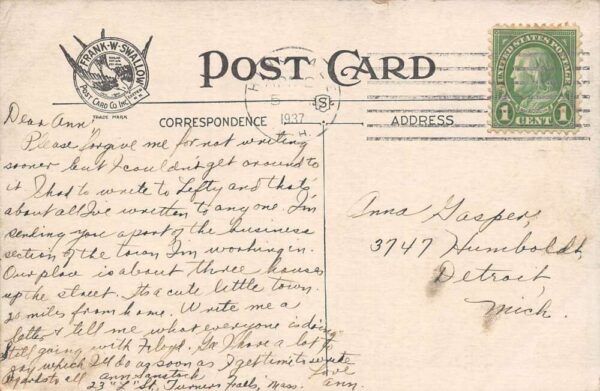 FRANK-W-SWALLOW
POST CARD CO. INC.
TRADE MARK
POST CARD
UNITED STATES POSTAGE
1 CENT 1
1937
CORRESPONDENCE
ADDRESS
Dear Ann,
Please forgive me for not writing
sooner but I couldn't get around to
it I had to write to Lefty and that's
about all I've written to anyone. I'm
sending you a part of the business
section of the town I'm working in.
Our place is about three houses
up the street. Its a cute little town.
20 miles from home. Write me a
letter & tell me what everyone is doing
Still going with Floyd. I have a lot to
say which I'll do as soon as I get time to write
Regards to all Love
Ann
23 "L" St. Turners Falls, Mass.
Anna Gasper,
3747 Humboldt,
Detroit,
Mich.